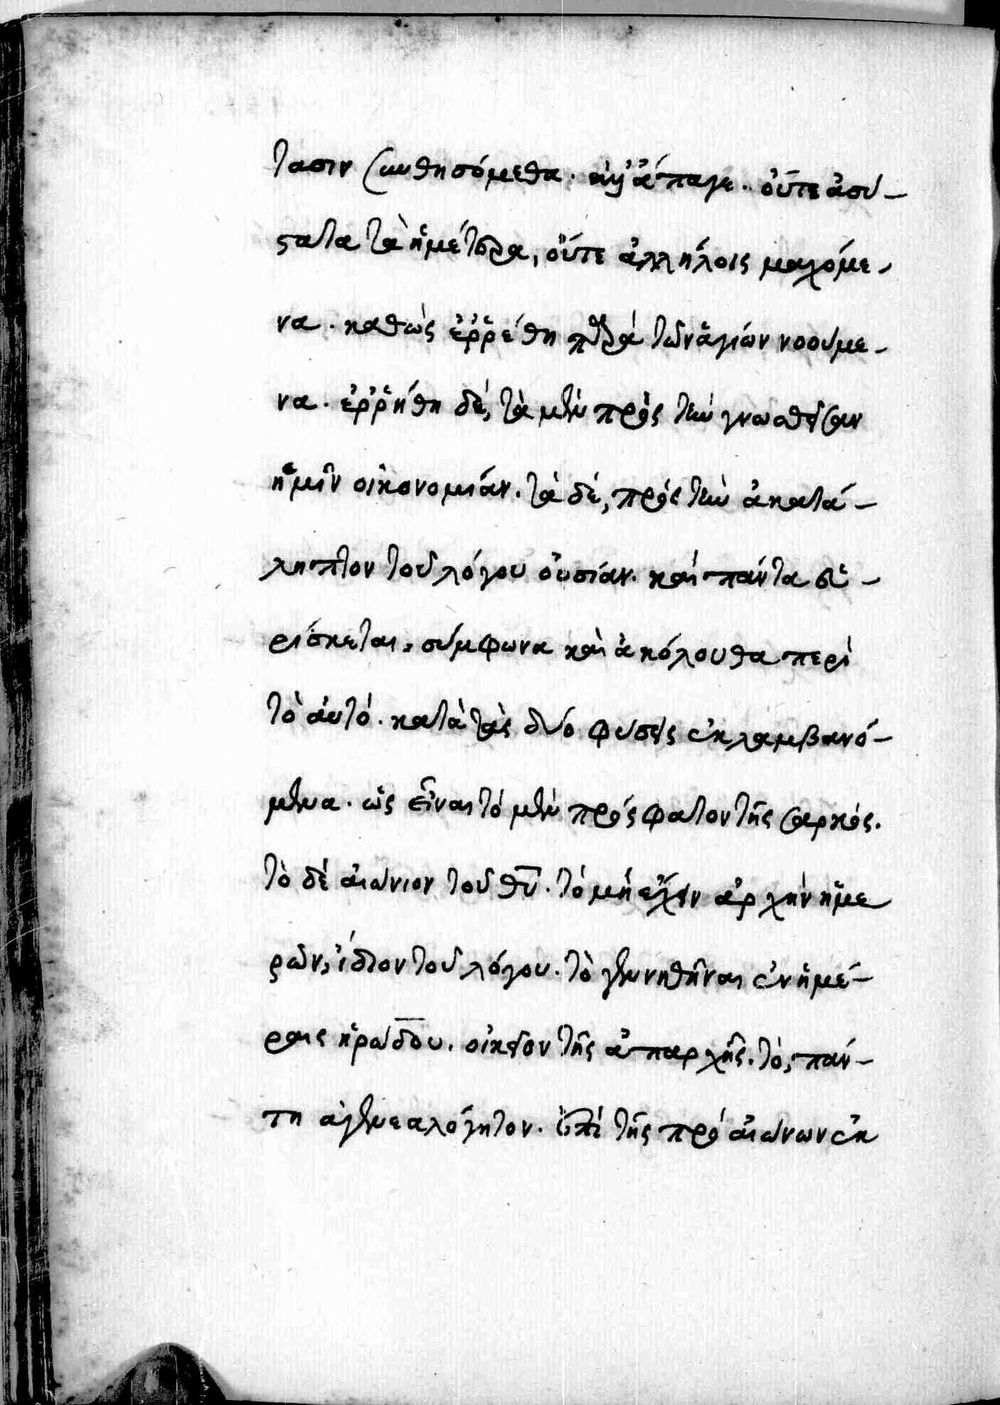 τασιν συνθησόμεθα. ἀλλ' ἄπαγε. οὔτε ἀσύ-
στατα τὰ ἡμέτερα, οὔτε ἀλλήλοις μαχόμε-
να. καθὼς ἐῤῥέθη παρὰ τῶν ἁγίων νοούμε-
να. ἐῤῥήθη δέ, τὰ μὲν πρὸς τὴν γνωσθεῖσαν
ἡμῖν οἰκονομίαν. τὰ δέ, πρὸς τὴν ἀκατά-
ληπτον τοῦ λόγου οὐσίαν. καὶ πάντα εὑ-
ρίσκεται, σύμφωνα καὶ ἀκόλουθα περὶ
τὸ αὐτό. κατὰ τὰς δύο φύσεις ἐκλαμβανό-
μενα. ὡς εἶναι τὸ μὲν πρόσφατον τῆς σαρκός.
τὸ δὲ αἰώνιον τοῦ θυ. τὸ μὴ ἔχειν ἀρχὴν ἡμε
ρῶν, ἴδιον τοῦ λόγου. τὸ γεννηθῆναι ἐν ἡμέ-
ραις ἡρώδου. οἰκεῖον τῆς ἀπαρχῆς. τὸ, πάν-
τη ἀγενεαλόγητον. ἐπὶ τῆς πρὸ αἰώνων ἐκ